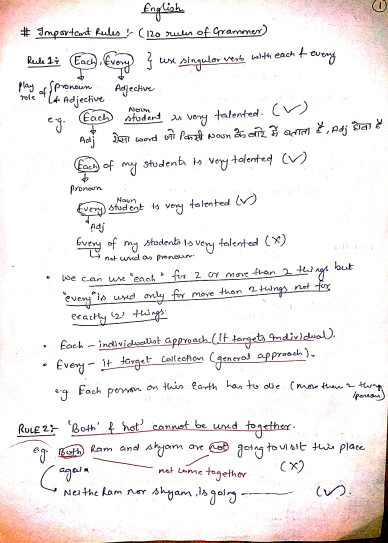 English
①
# Important Rules :- (120 rules of Grammer)
Rule 1:- Each, Every } use singular verb with each & every
Play role of { Pronoun & Adjective
Adjective
e.g. Each student is very talented. (✓)
Noun
Adj ऐसा word जो किसी Noun के बारे में बताता है, Adj होता है
Each of my students is very talented (✓)
Pronoun
Noun
Every student is very talented (✓)
Adj
Every of my students is very talented (X)
not used as pronoun
• We can use "each" for 2 or more than 2 things but
"every" is used only for more than 2 things not for
exactly (2) things
• Each – individualist approach (it targets individual).
• Every – it target collection (general approach).
e.g Each person on this Earth has to die (more than 2 things
/persons)
RULE 2:- 'Both' & 'not' cannot be used together.
eg. Both Ram and shyam are not going to visit this place
again
not come together
(X)
Neithe Ram nor shyam, is going ——— (✓).